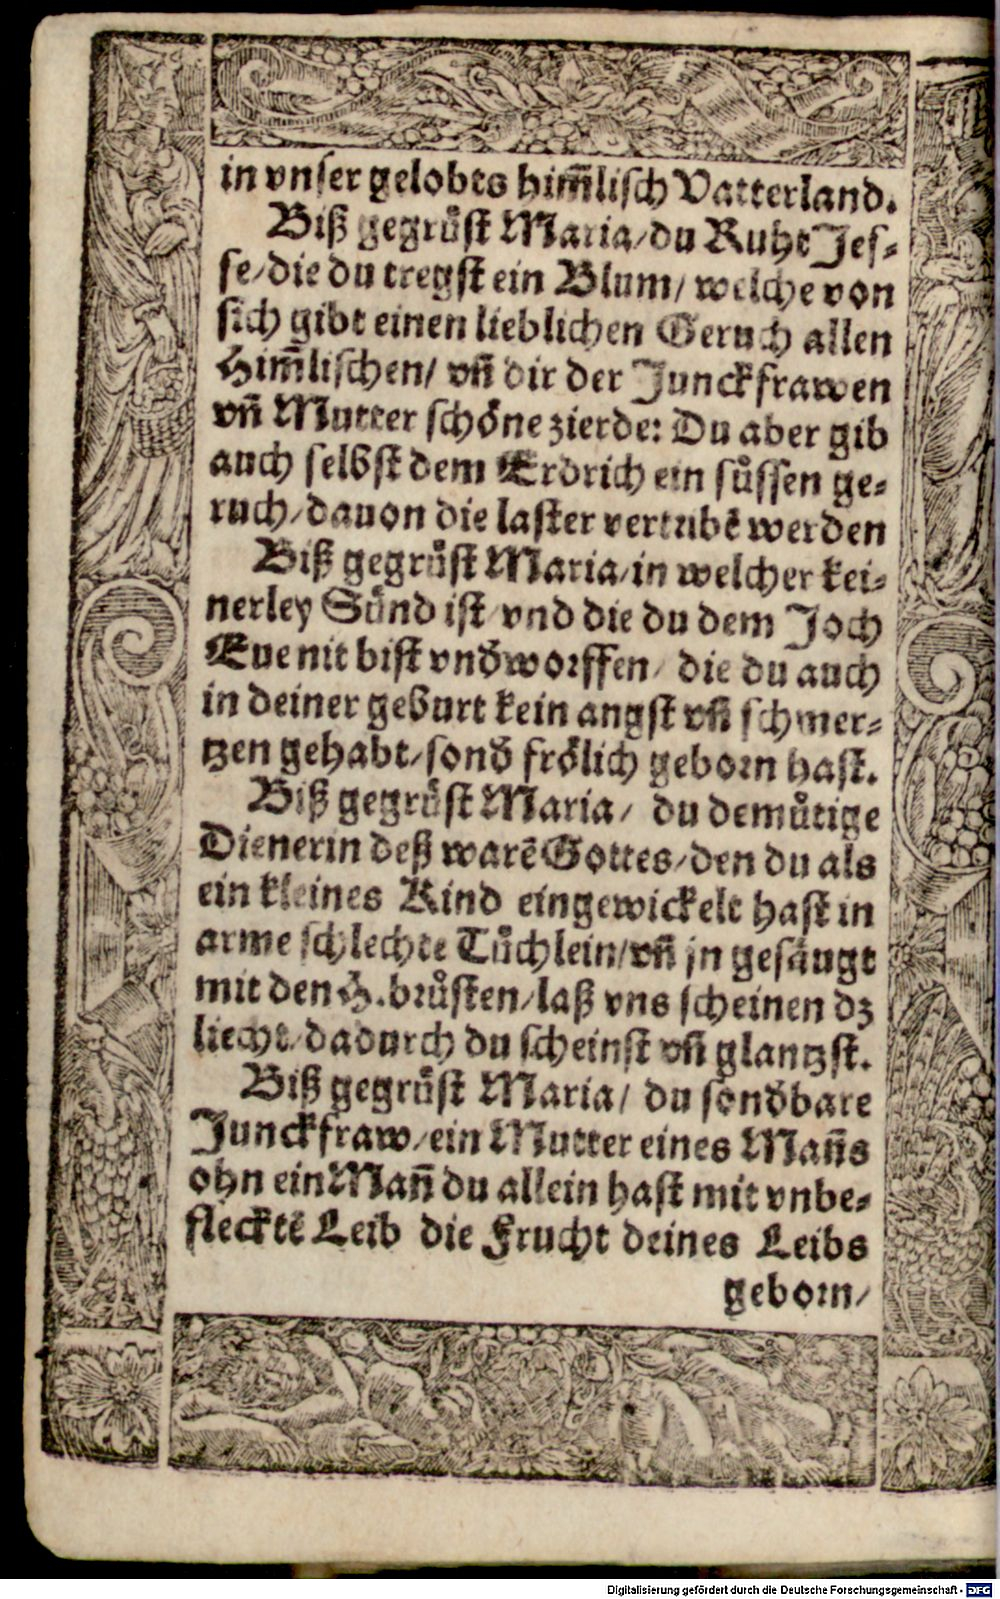 in vnser gelobtes him̃lisch Vatterland.
Biß gegruͤst Maria/ du Ruht Jes-
se/ die du tregst ein Blum/ welche von
sich gibt einen lieblichen Geruch allen
Him̃lischen/ vñ dir der Junckfrawen
vñ Mutter schoͤne zierde: Du aber gib
auch selbst dem Erdrich ein suͤssen ge-
ruch/ dauon die laster vertribẽ werden
Biß gegruͤst Maria/ in welcher kei-
nerley Suͤnd ist/ vnd die du dem Joch
Eue nit bist vnd̕worffen/ die du auch
in deiner geburt kein angst vñ schmer-
tzen gehabt/ sond̕ froͤlich geborn hast.
Biß gegruͤst Maria/ du demuͤtige
Dienerin deß warẽ Gottes/ den du als
ein kleines Kind eingewickelt hast in
arme schlechte Tuͤchlein/ vñ jn gesaͤugt
mit den H. bruͤsten/ laß vns scheinen dz
liecht/ dadurch du scheinst vñ glantzst.
Biß gegruͤst Maria/ du sond̕bare
Junckfraw/ ein Mutter eines Mañs
ohn ein Mañ du allein hast mit vnbe-
flecktẽ Leib die Frucht deines Leibs
geborn/
Digitalisierung gefördert durch die Deutsche Forschungsgemeinschaft - DFG